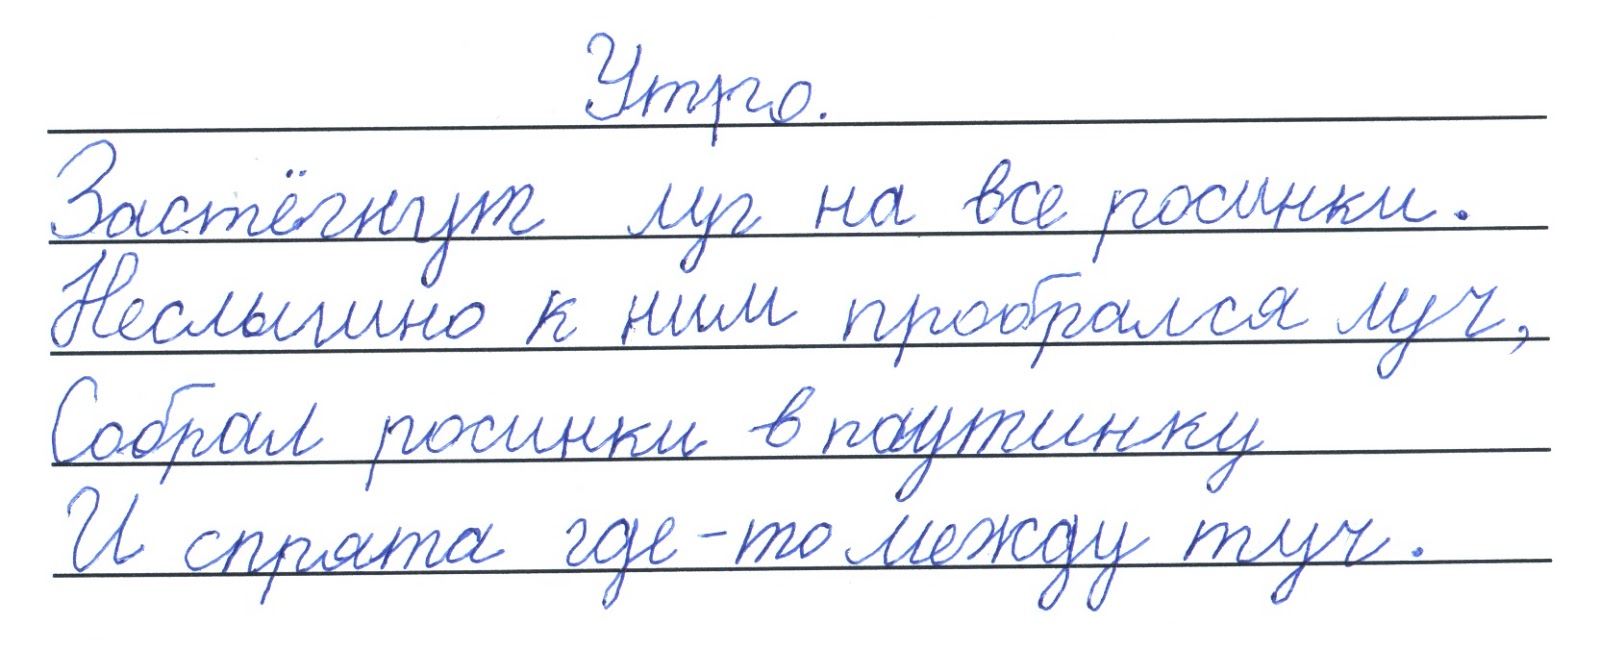 Утро.
Застёгнут луг на все росинки.
Неслышно к ним пробрался луч,
Собрал росинки в паутинку
И спрята где-то между туч.